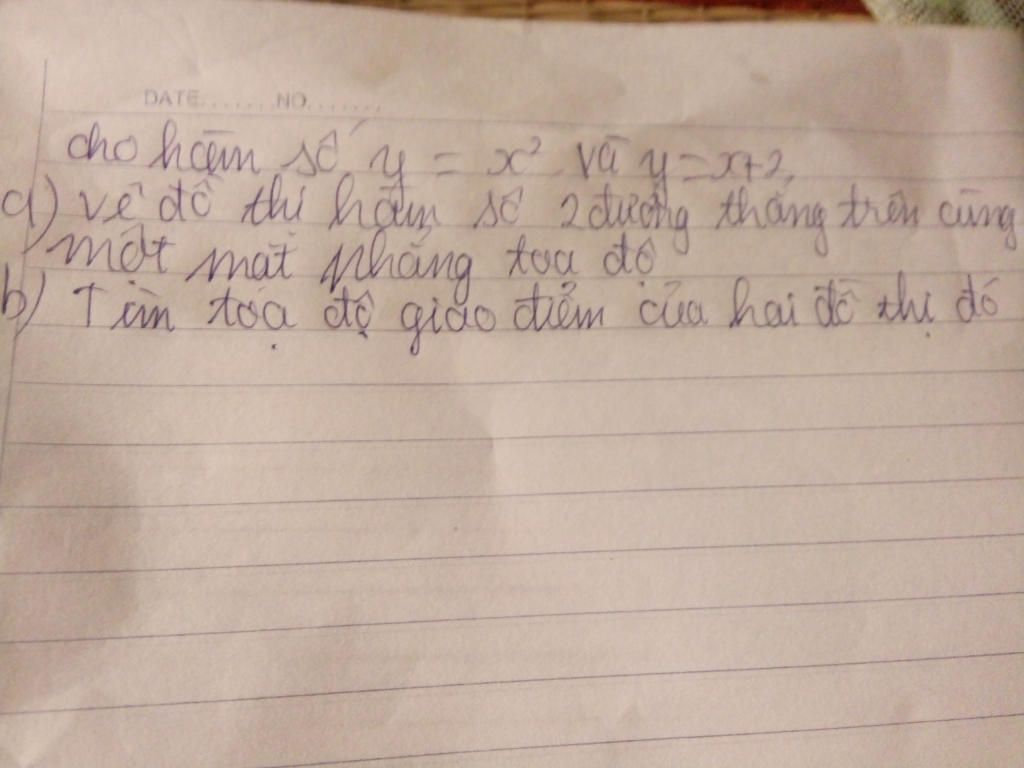 DATE.......NO.......
cho hàm số y = x² và y=x+2.
a) vẽ đồ thị hàm số 2 đường thẳng trên cùng
một mặt phẳng tọa độ
b) Tìm tọa độ giao điểm của hai đồ thị đó